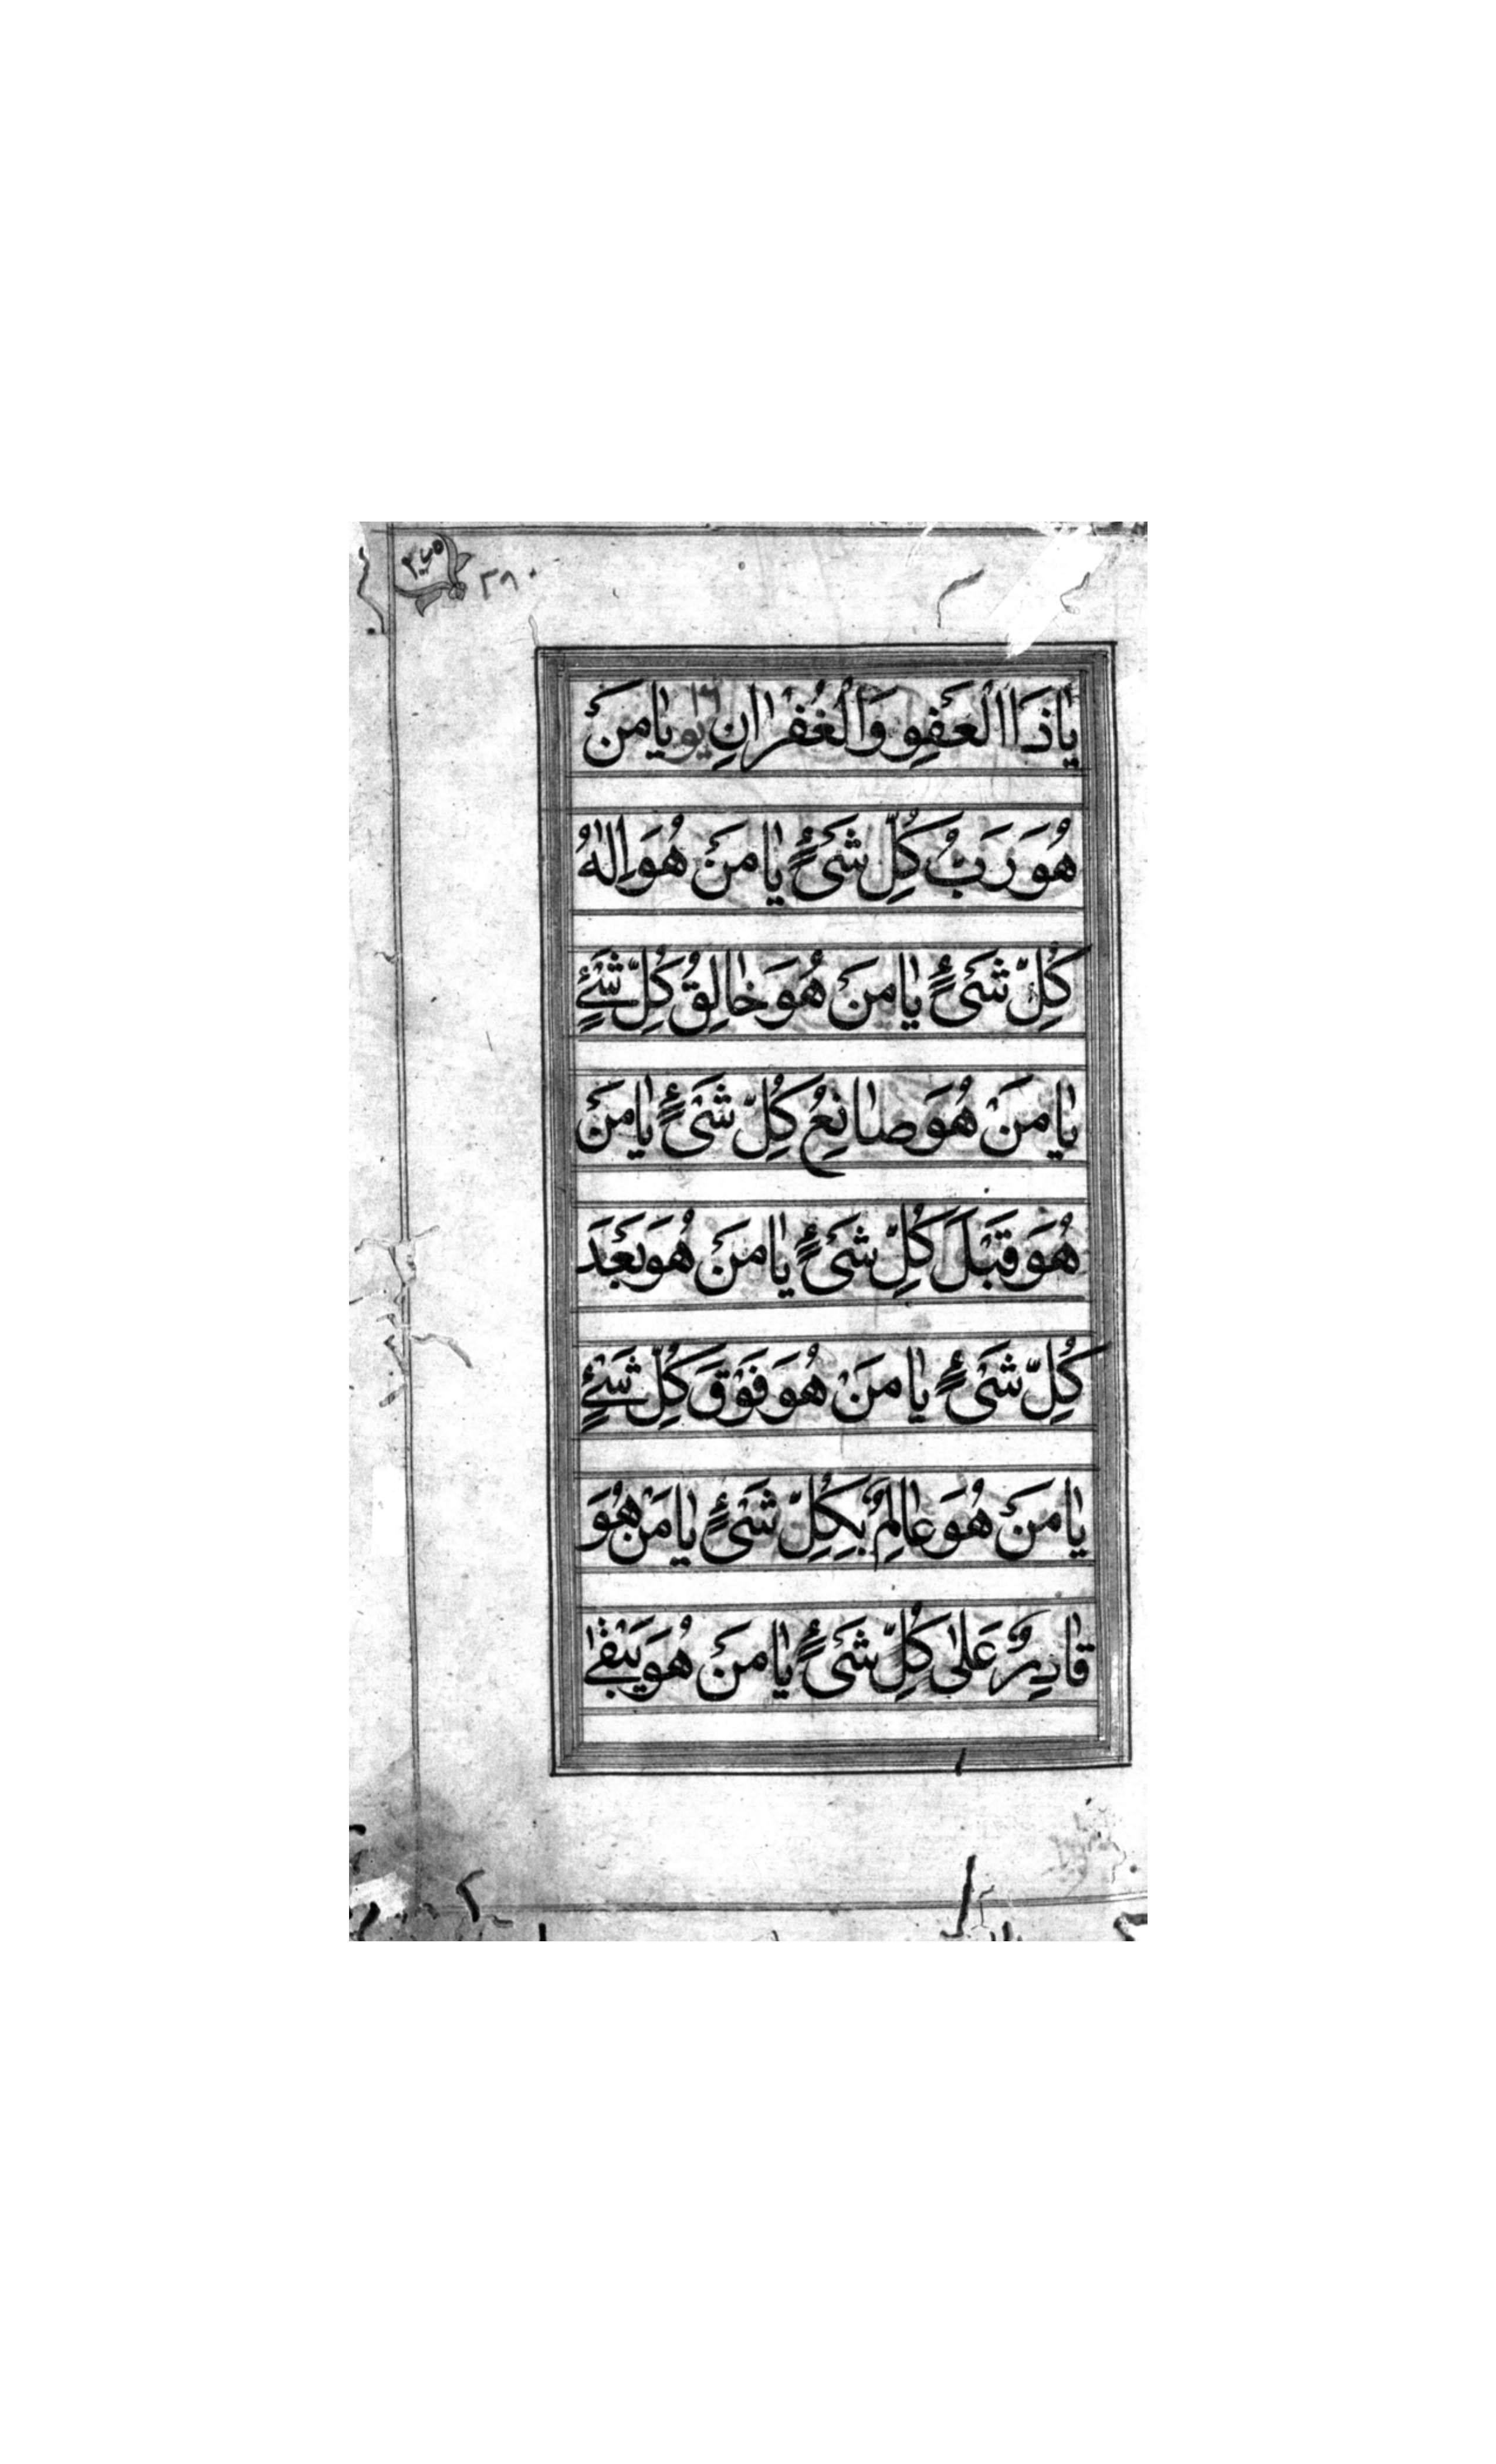 ٣٨٠
يَا ذَا الْعَفْوِ وَالْغُفْرَانِ يو يَا مَنْ
هُوَ رَبُّ كُلِّ شَىْءٍ يَا مَنْ هُوَ اِلٰهُ
كُلِّ شَىْءٍ يَا مَنْ هُوَ خَالِقُ كُلِّ شَىْءٍ
يَا مَنْ هُوَ صَانِعُ كُلِّ شَىْءٍ يَا مَنْ
هُوَ قَبْلَ كُلِّ شَىْءٍ يَا مَنْ هُوَ بَعْدَ
كُلِّ شَىْءٍ يَا مَنْ هُوَ فَوْقَ كُلِّ شَىْءٍ
يَا مَنْ هُوَ عَالِمٌ بِكُلِّ شَىْءٍ يَا مَنْ هُوَ
قَادِرٌ عَلٰى كُلِّ شَىْءٍ يَا مَنْ هُوَ يَبْقٰى